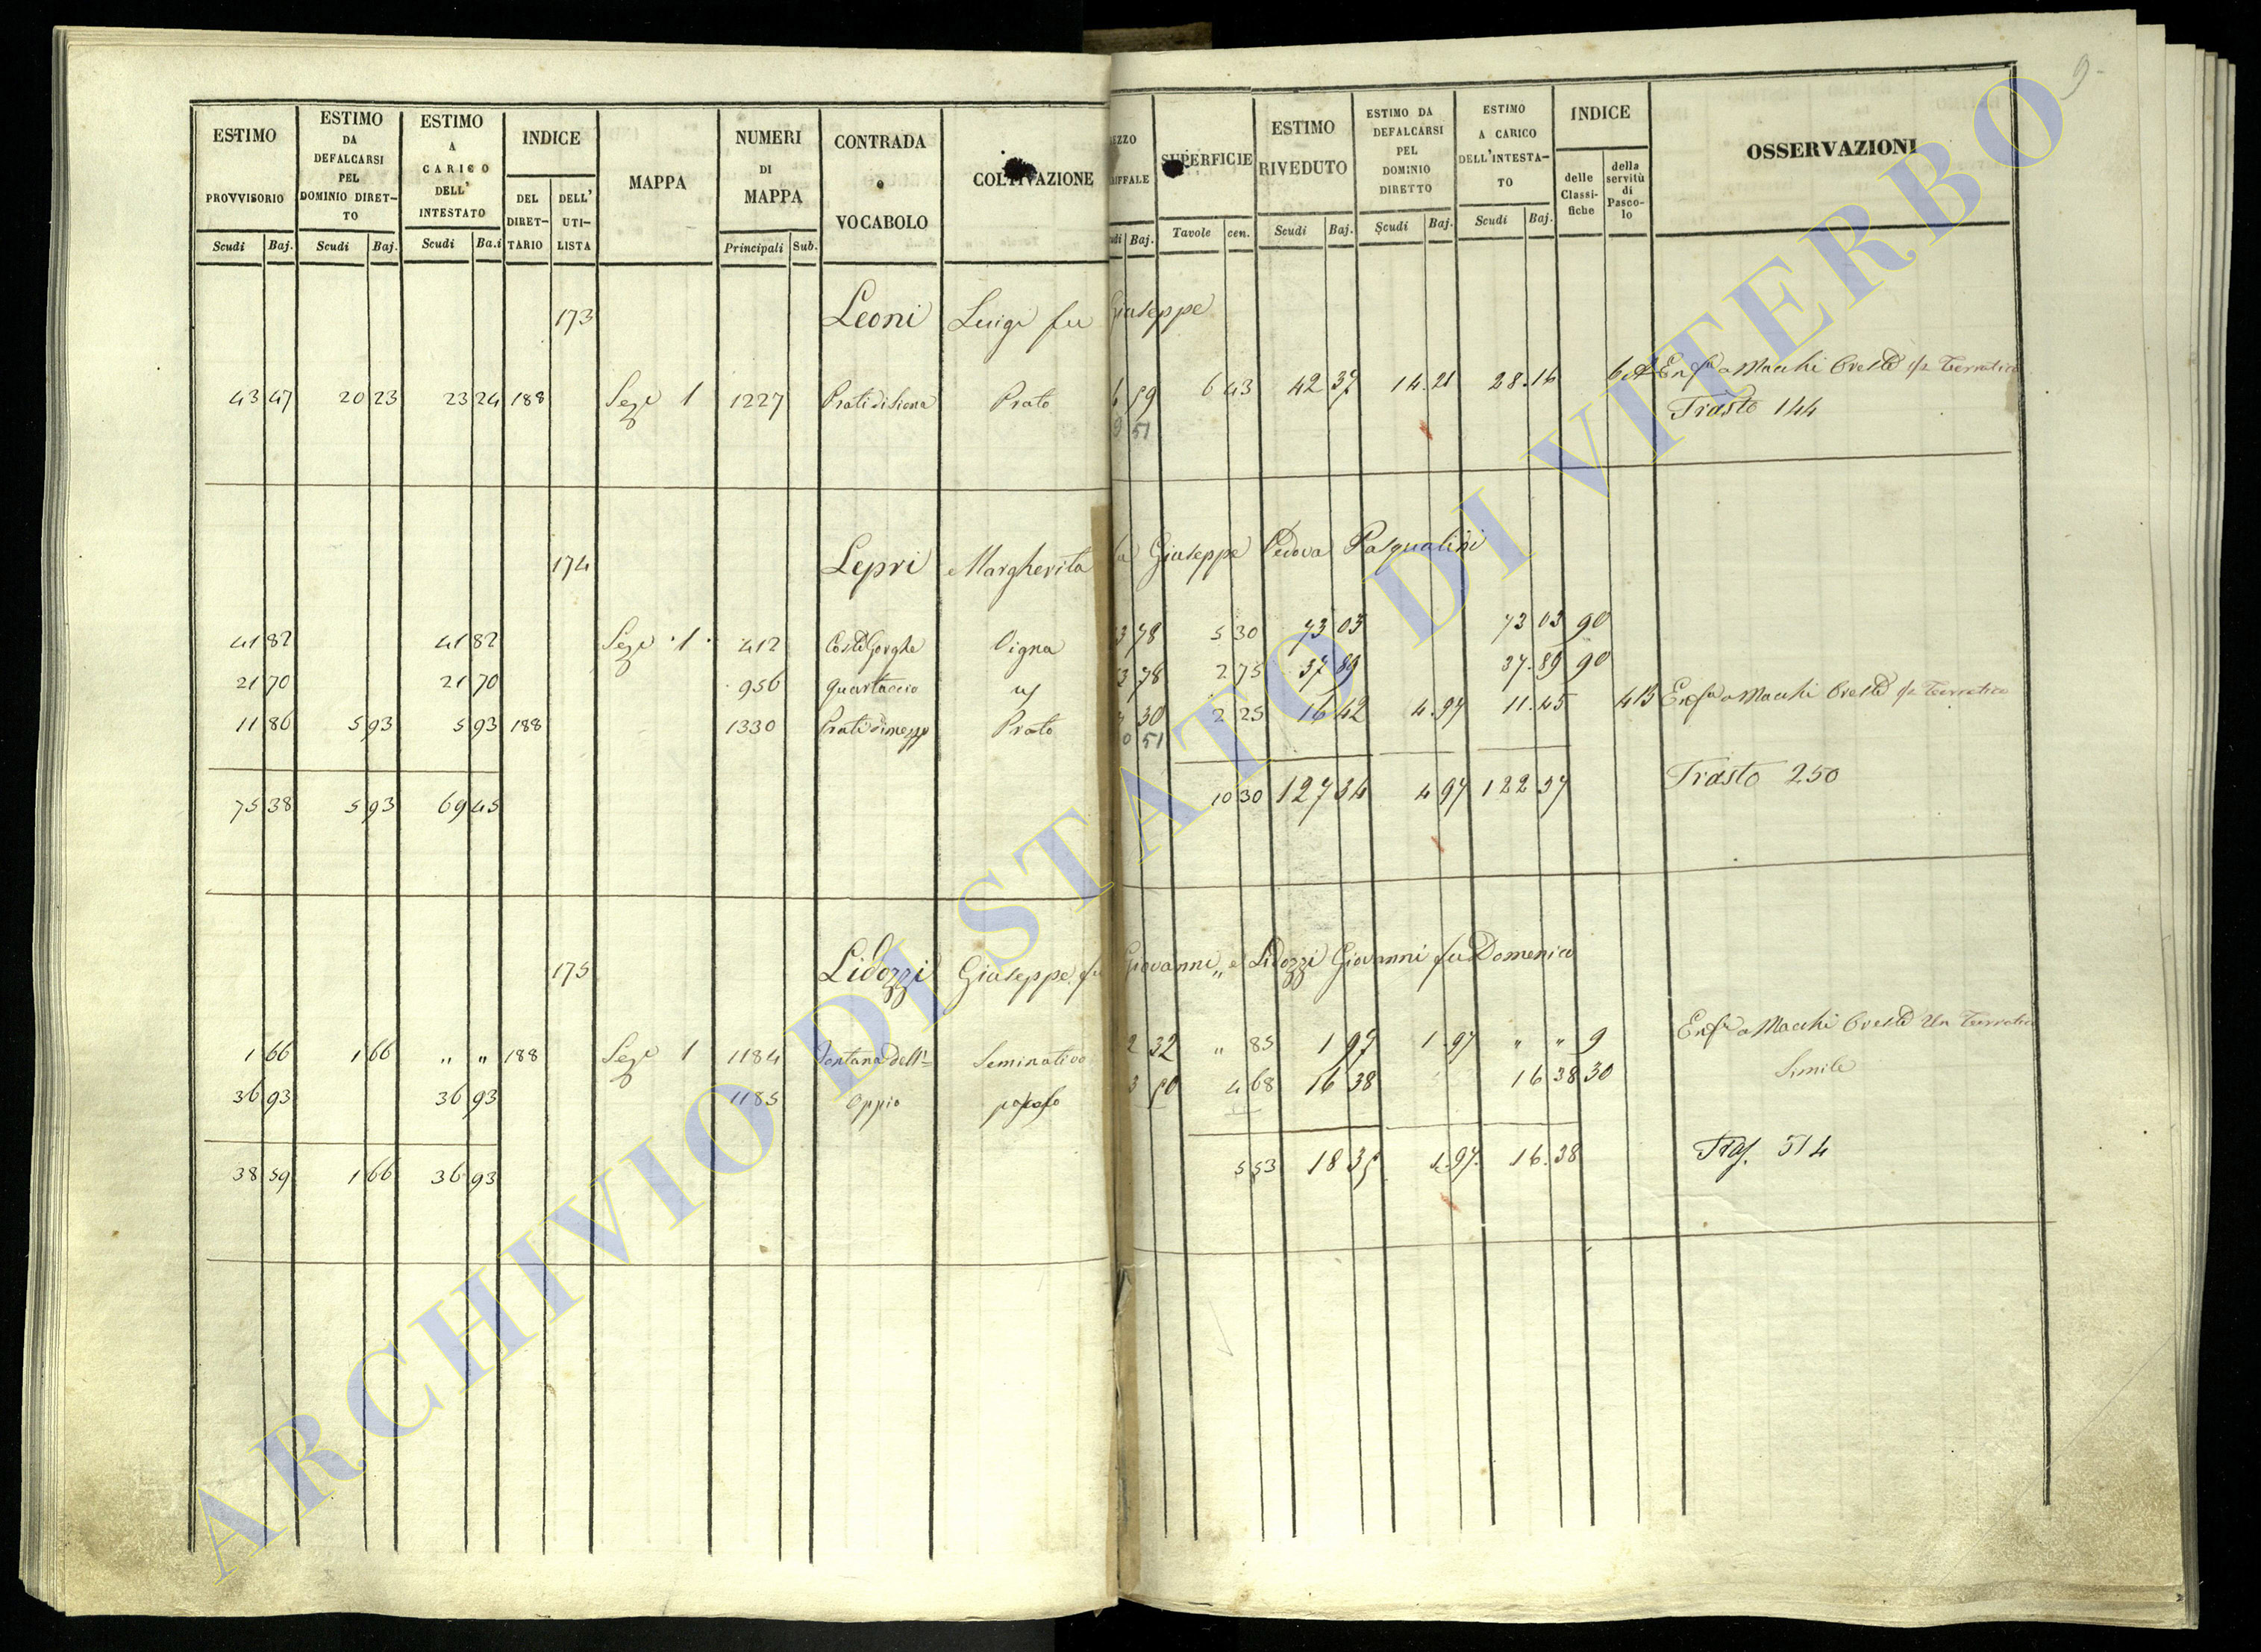 9-
ESTIMO PROVVISORIO Scudi Baj. ESTIMO DA DEFALCARSI PEL DOMINIO DIRET-TO Scudi Baj. ESTIMO A CARICO DELL' INTESTATO Scudi Ba.i INDICE DEL DIRET-TARIO DELL' UTI-LISTA MAPPA NUMERI DI MAPPA Principali Sub. CONTRADA o VOCABOLO COLTIVAZIONE Baj. SUPERFICIE Tavole cen. ESTIMO RIVEDUTO Scudi Baj. ESTIMO DA DEFALCARSI PEL DOMINIO DIRETTO Scudi Baj. ESTIMO A CARICO DELL'INTESTA-TO Scudi Baj. INDICE delle Classi-fiche della servitù di Pasco-lo OSSERVAZIONI
173 Leoni Luigi fu Giuseppe
43 47 20 23 23 24 188 Seze 1 1227 Prati di Siena Prato 6 59 6 43 42 37 14.21 28.16 6 A Enfa a Macchi Oreste
51 Trasto 144
174 Lepri Margherita fa Giuseppe Vedova Pasqualini
41 82 41 82 Seze 1 412 Coste Gorghe Vigna 3 78 5 30 73 03 73 03 90
21 70 21 70 956 Quartaccio 3 78 2 75 37 89 37.89 90
11 86 5 93 5 93 188 1330 Prati di mezzo Prato 30 2 25 16 42 4.97 11.45 4 B Enfa a Macchi Oreste
0 51
75 38 5 93 69 45 10 30 127 34 4 97 122 37 Trasto 250
175 Lidozzi Giuseppe fu Giovanni „ e Lidozzi Giovanni fu Domenico
1 66 1 66 „ „ 188 Seze 1 1184 Fontana dell'= Seminativo 2 32 „ 85 1 97 1.97 „ „ 9 Enfa a Macchi Oreste Un Terratico
36 93 36 93 1185 Oppio 3 50 4 68 16 38 16 38 30 Simile
38 59 1 66 36 93 5 53 18 35 1.97. 16.38 Tras. 514
ARCHIVIO DI STATO DI VITERBO